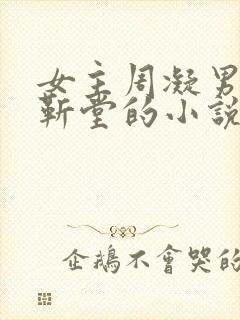 女主周凝男
靳堂的小說
企鵝不會哭的